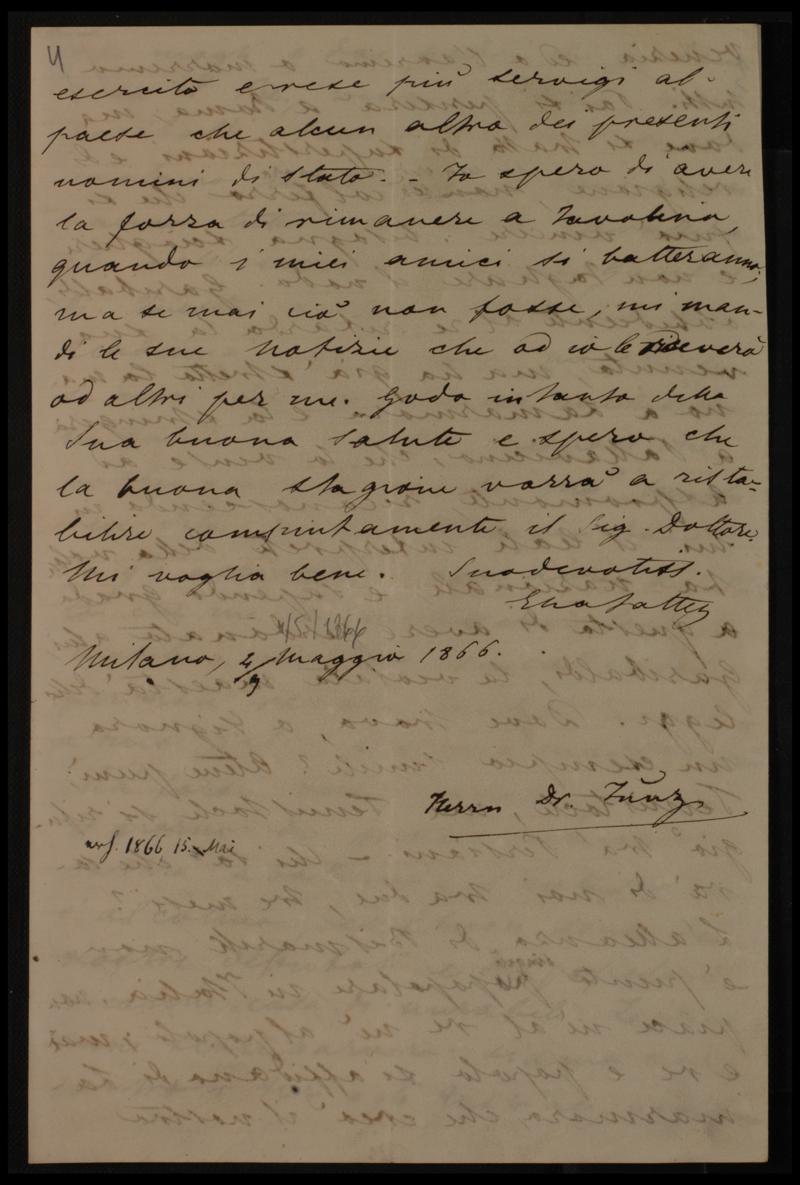 4
esercito e rese più servigi al
paese che alcun altro dei presenti
uomini di stato. - Io spero di avere
la forza di rimanere a Tavolino,
quando i miei amici si batteranno;
ma se mai ciò non fosse, mi man-
di le sue notizie che ad io le riceverò
ad altri per me. Godo intanto della
Sua buona salute e spero che
la buona stagione varrà a rista-
bilire compiutamente il Sig. Dottore.
Mi voglia bene. Suo devotiss.
4/5/1866
Milano, 4 Maggio 1866.
Herrn Dr. Zunz
1866 15. Mai